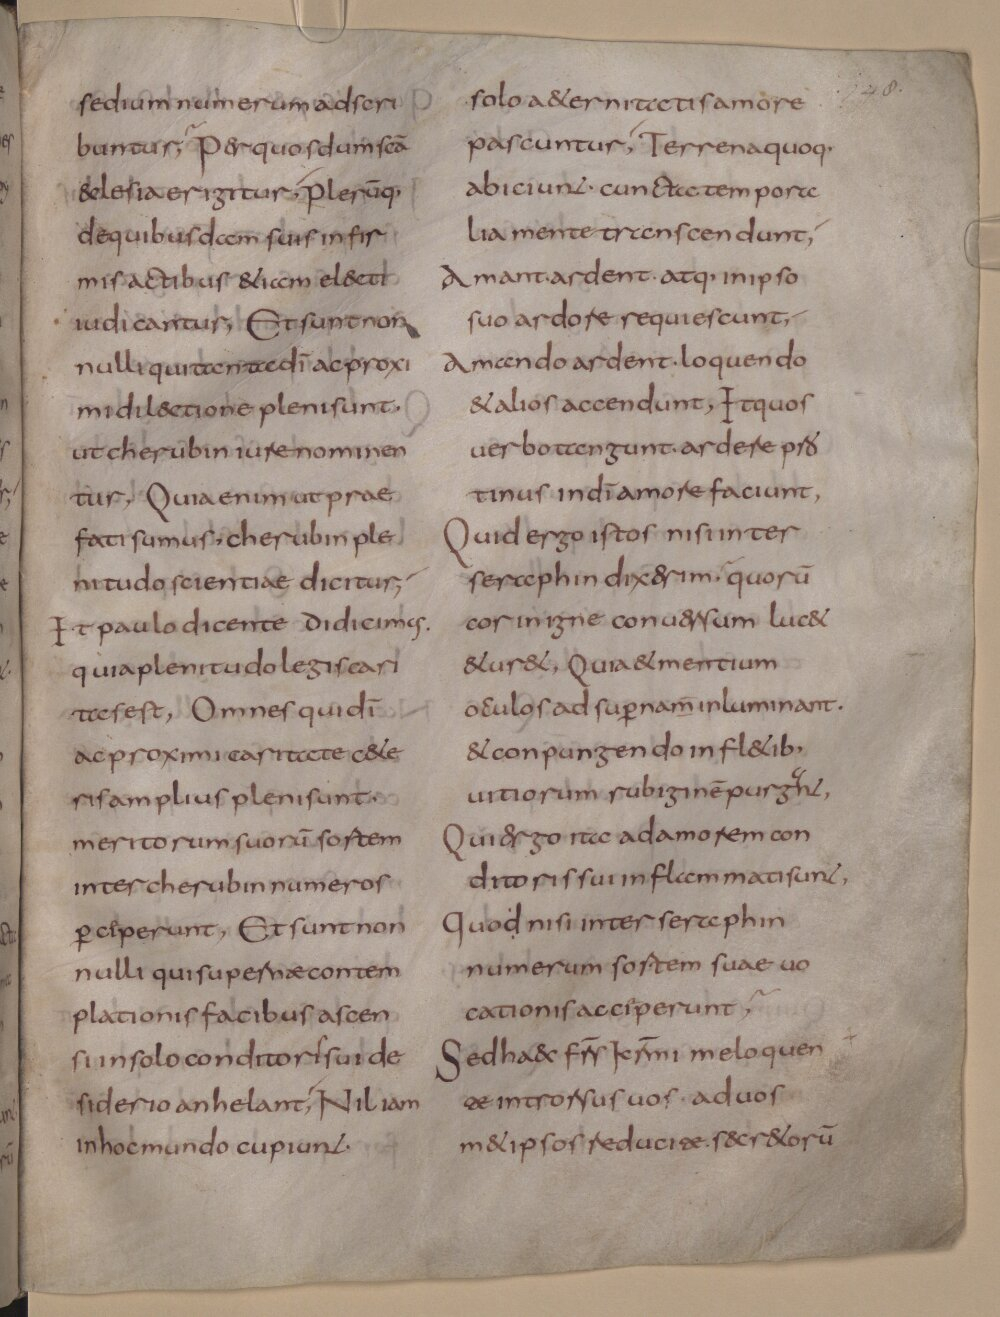 248.
sedium numerum adscri
buntur; P&rquosdum scā
&clesia erigitur; Plerūq·
dequibusdam suis infir
mis actibus &iam el&cti
iudicantur, Et sunt non
nulli qui tanta dī ac proxi
mi dil&ctione pleni sunt·
ut cherubin iure nominen
tur, Quia enim ut prae
fati sumus, cherubin ple
nitudo scientiae dicitur;
It paulo dicente didicimus.
quia plenitudo legis cari
tas est, Omnes qui dī
ac proximi caritate c&e
ris amplius pleni sunt·
meritorum suorū sortem
inter cherubin numeros
perciperunt, Et sunt non
nulli qui supernæ contem
plationis facibus ascen
si in solo conditoris sui de
siderio anhelant, Nil iam
in hoc mundo cupiunt·
solo a&erni tatis amore
pascuntur, Terrena quoq·
abiciunt· cuncta tempora
lia mente transcendunt,
Amant· ardent· atq· in ipso
suo ardore requiescunt,
Amando ardent· loquendo
&alios accendunt, It quos
verbo tangunt· ardere pro
tinus in dī amore faciunt,
Quid ergo istos nisi inter
seraphin dix&rim· quorū
cor in igne conuersum luc&
&ur&, Quia &mentium
oculos ad supernam inluminant.
&conpungendo in fl&ib·
uitiorum rubiginē purgant,
Qui &rgo ita ad amorem con
ditoris sui inflammati sunt,
Quod nisi inter seraphin
numerum sortem suae uo
cationis acciperunt;
Sed haec frs krmi me loquen
te introrsus uos· ad uos
m&ipsos reducite· secr&orū